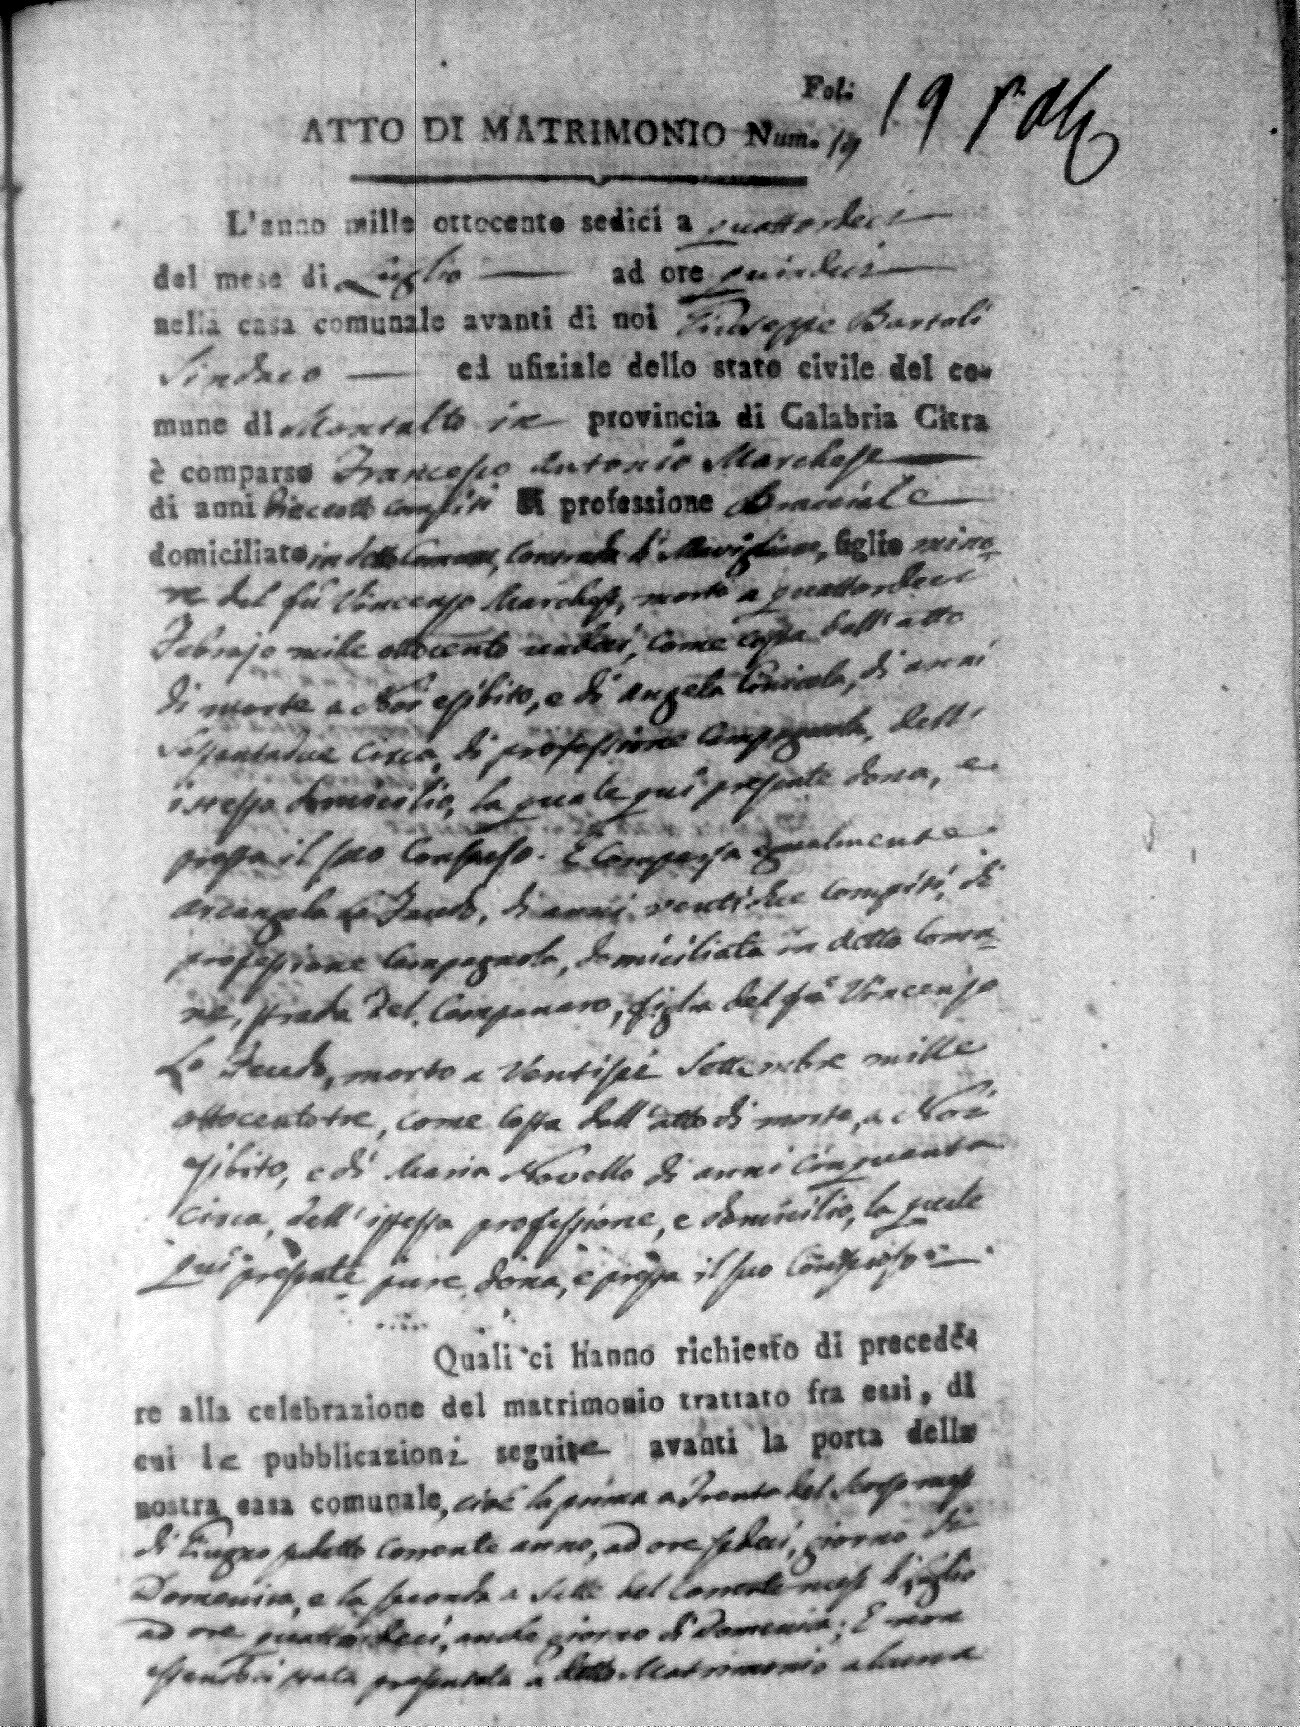 Fol: 19
ATTO DI MATRIMONIO Num. 19
L'anno mille ottocento sedici a quattordeci
del mese di Luglio ad ore quindeci
nella casa comunale avanti di noi Giuseppe Bartoli
Sindaco ed ufiziale dello stato civile del co-
mune di Montalto in provincia di Calabria Citra
è comparso Francesco Antonio Marchese
di anni Dieciotto compiti di professione Bracciale
domiciliato in detto Comune, Contrada di, figlio mino-
re del fu Vincenzo Marchese, morto a quattordeci
Febrajo mille ottocento undeci, come costa dall'atto
di morte a Noi esibito, e di Angela, di anni
Sessantadue circa, di professione Campagnola, dell'
istesso domicilio, la quale qui presente dona, e
presta il suo Consenso. E comparsa egualmente
Arcangela Lo Feudo, di anni ventidue compiti, di
professione Campagnola, domiciliata in detto Comu-
ne, strada del Campanaro, figlia del fu Vincenzo
Lo Feudo, morto a Ventisei Settembre mille
ottocentotre, come costa dall'atto di morte, a Noi
esibito, e di Maria Novello di anni cinquanta
circa, dell'istessa professione, e domicilio, la quale
qui presente pure dona, e presta il suo Consenso
Quali ci hanno richiesto di precede-
re alla celebrazione del matrimonio trattato fra essi, di
cui le pubblicazioni seguite avanti la porta della
nostra casa comunale, cioè la prima a Trenta del scorso mese
di Giugno sudetto corrente anno, ad ore sedeci, giorno di
Domenica, e la seconda a Sette del corrente mese di Luglio
ad ore quattordeci, anche giorno di Domenica; E non
essendoci stata presentata a detto Matrimonio alcuna